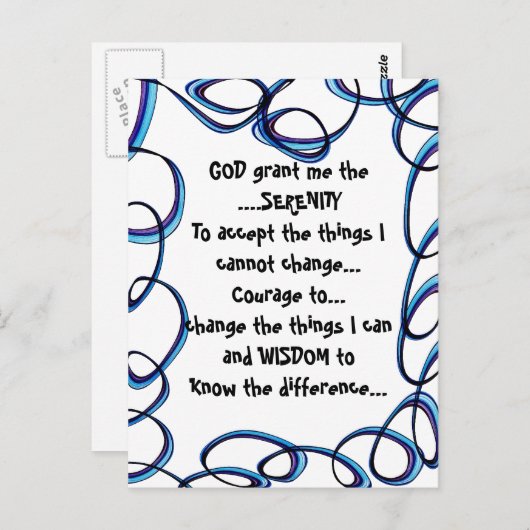 GOD grant me the
....SERENITY
To accept the things I
cannot change...
Courage to...
change the things I can
and WISDOM to
Know the difference...
Place
zzle